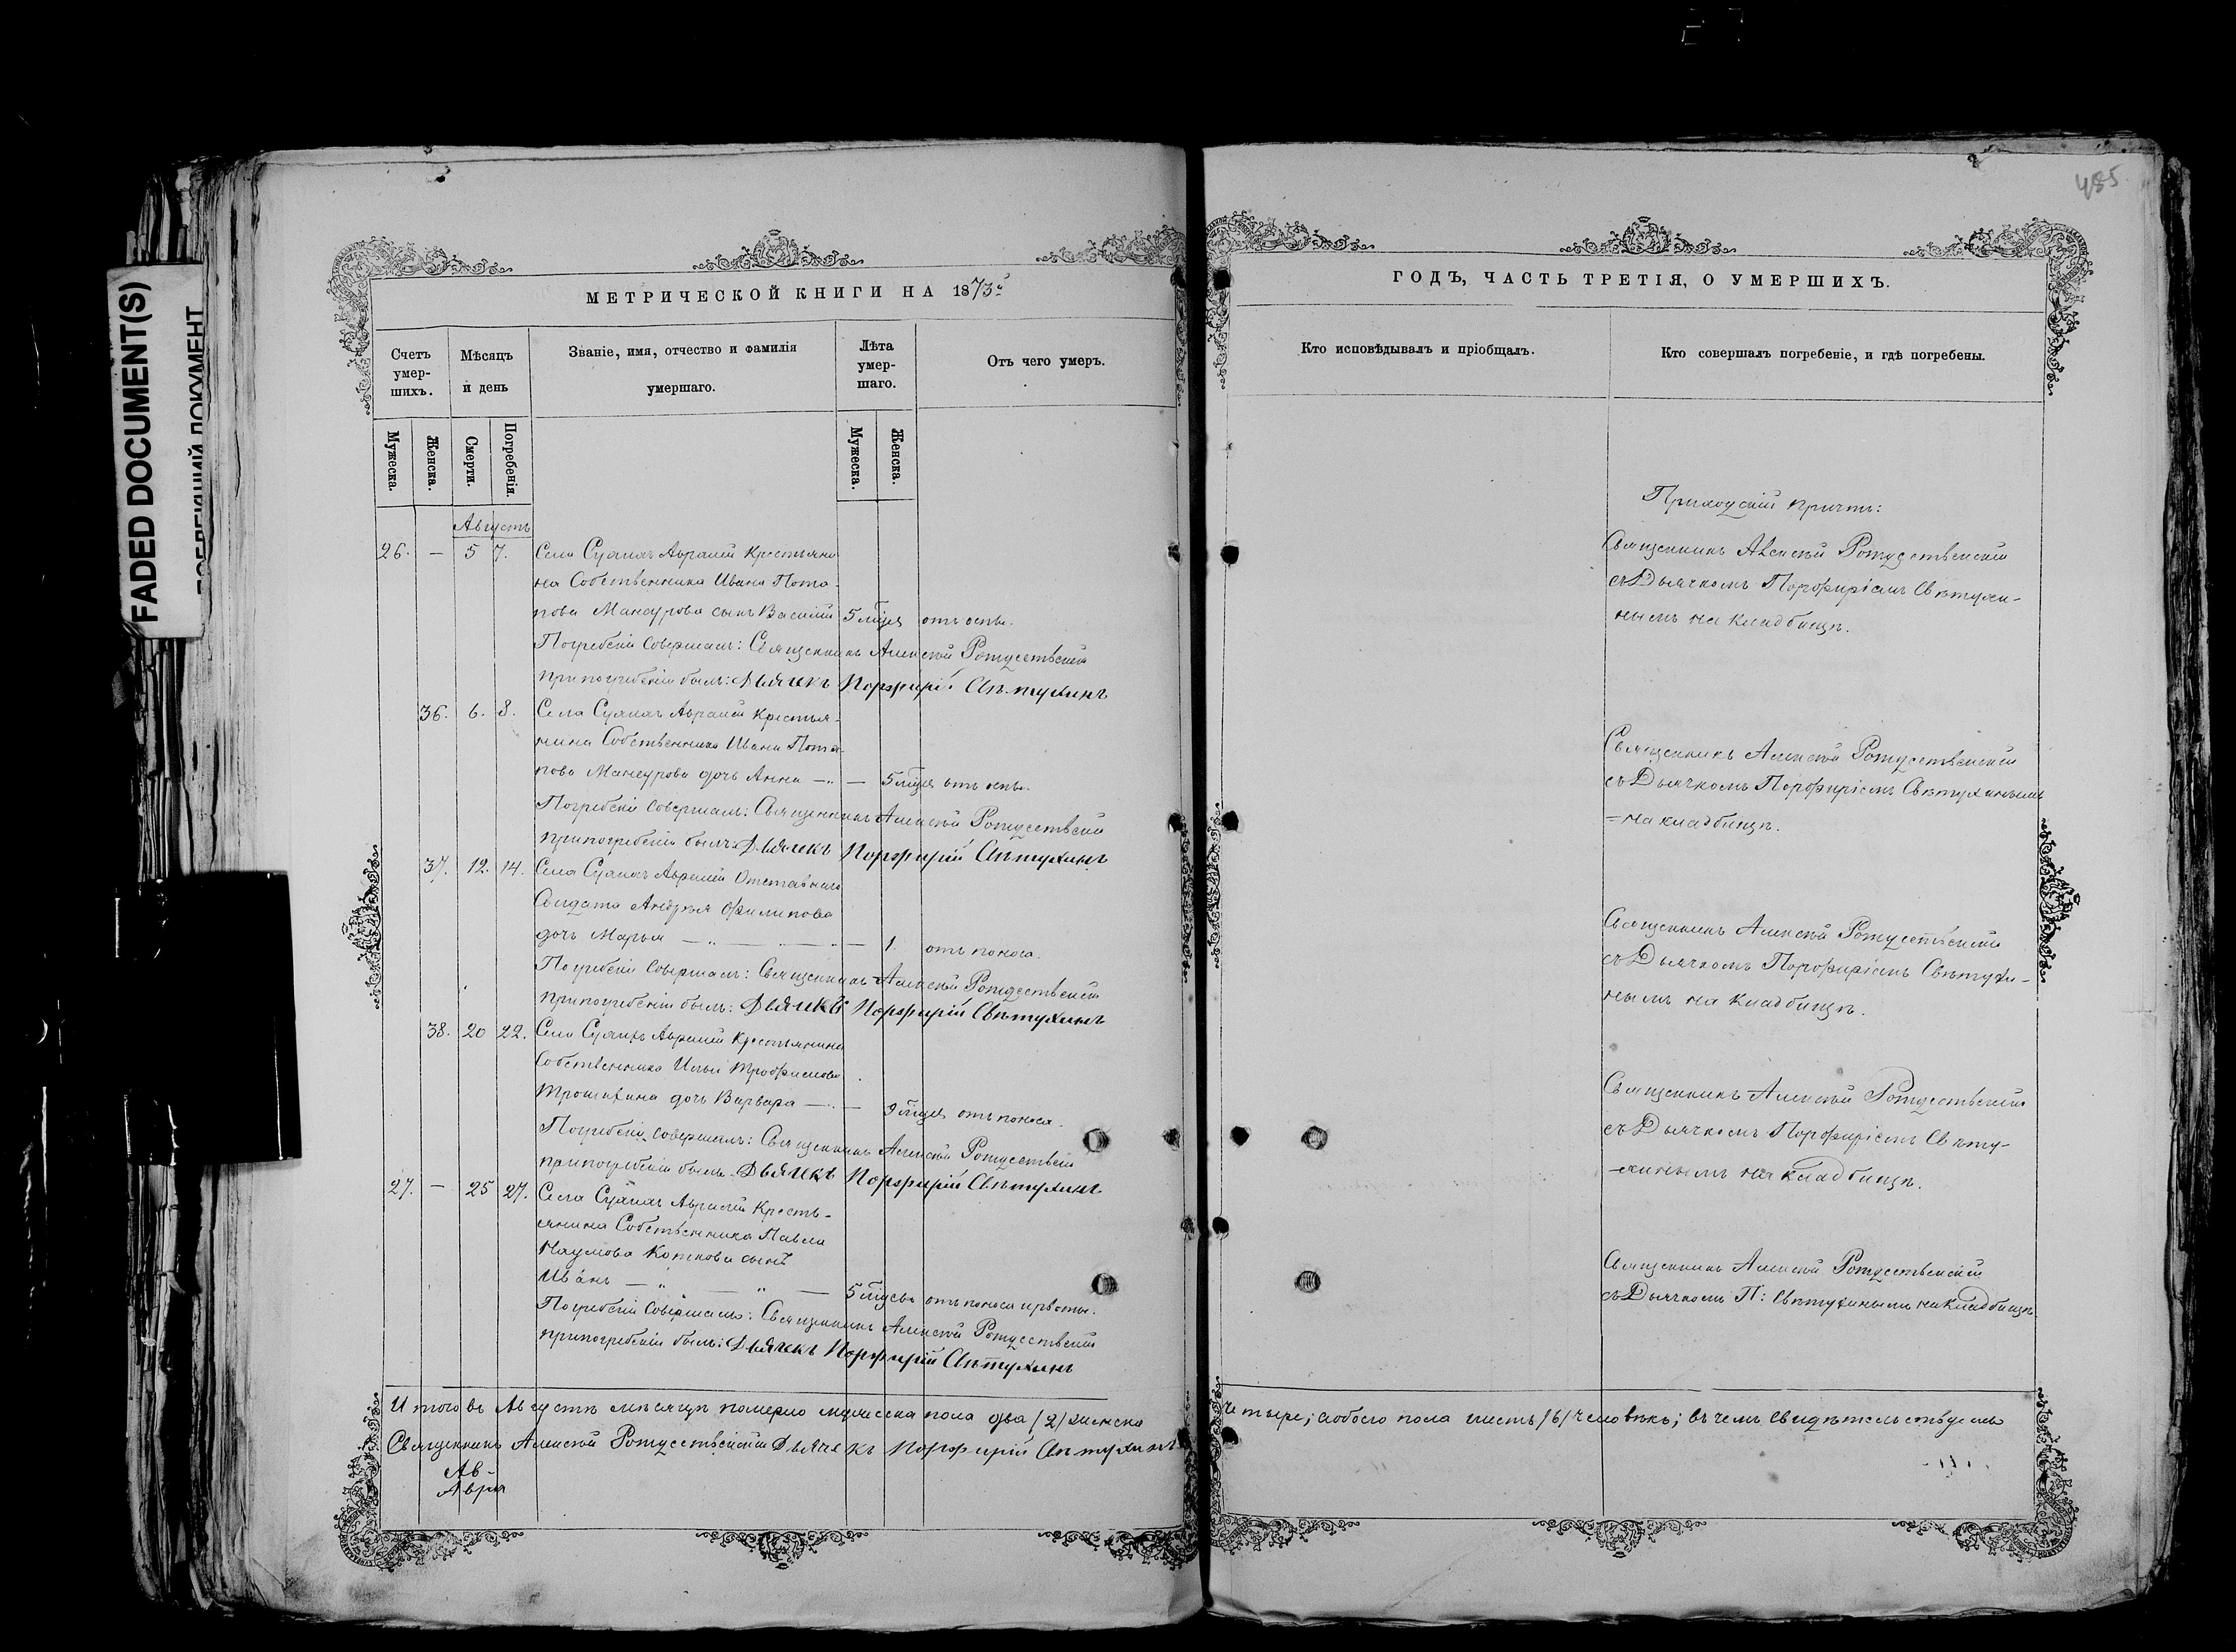 485
FADED DOCUMENT(S)
ДОКУМЕНТ
МЕТРИЧЕСКОЙ КНИГИ НА 1873й
Счетъ умер-шихъ.
Мѣсяцъ и день
Званіе, имя, отчество и фамилія умершаго.
Лѣта умер-шаго.
Отъ чего умеръ.
Мужеска.
Женска.
Смерти.
Погребенія.
Мужеска.
Женска.
Августъ
26. — 5 7. Села Крестьяни-
на Собственника Ивана Пота-
пова Мансурова сынъ Василій 5 мѣсяц. отъ оспы.
Погребеніе совершалъ: Священникъ Алексѣй Рождественскій
при погребеніи былъ: Дьячекъ Порфирій Свѣтухинъ
36. 6. 8. Села Крестья-
нина Собственника Ивана Пота-
пова Мансурова дочь Анна — 5 мѣсяц. отъ оспы.
Погребеніе совершалъ: Священникъ Алексѣй Рождественскій
при погребеніи былъ: Дьячекъ Порфирій Свѣтухинъ
37. 12. 14. Села Отставнаго
Солдата Андрея Филипова
дочь Марья — 1. отъ поноса.
Погребеніе совершалъ: Священникъ Алексѣй Рождественскій
при погребеніи былъ: Дьячекъ Порфирій Свѣтухинъ
38. 20 22. Села Крестьянина
Собственника Ильи Трофимова
Трошихина дочь Варвара — 9 мѣсяц. отъ поноса.
Погребеніе совершалъ: Священникъ Алексѣй Рождественскій
при погребеніи былъ Дьячекъ Порфирій Свѣтухинъ
27. — 25 27. Села Кресть-
янина Собственника Павла
Наумова Коткова сынъ
Иванъ — 5 мѣсяц. отъ поноса и рвоты.
Погребеніе совершалъ: Священникъ Алексѣй Рождественскій
при погребеніи былъ: Дьячекъ Порфирій Свѣтухинъ
Итого въ Августѣ мѣсяцѣ померло мужеска пола два /2/ женска
Священникъ Алексѣй Рождественскій Дьячекъ Порфирій Свѣтухинъ
Ав-
ГОДЪ, ЧАСТЬ ТРЕТІЯ, О УМЕРШИХЪ.
Кто исповѣдывалъ и пріобщалъ.
Кто совершалъ погребеніе, и гдѣ погребены.
Приходскій причтъ:
Священникъ Алексѣй Рождественскій
съ Дьячкомъ Порфиріемъ Свѣтухи-
нымъ на кладбищѣ.
Священникъ Алексѣй Рождественскій
съ Дьячкомъ Порфиріемъ Свѣтухинымъ
=на кладбищѣ.
Священникъ Алексѣй Рождественскій
съ Дьячкомъ Порфиріемъ Свѣтухи-
нымъ на кладбищѣ.
Священникъ Алексѣй Рождественскій
съ Дьячкомъ Порфиріемъ Свѣту-
-хинымъ на кладбищѣ.
Священникъ Алексѣй Рождественскій
съ Дьячкомъ П: Свѣтухинымъ на кладбищѣ.
четыре; а обоего пола шесть /6/ человѣкъ; въ чемъ свидѣтельствуемъ